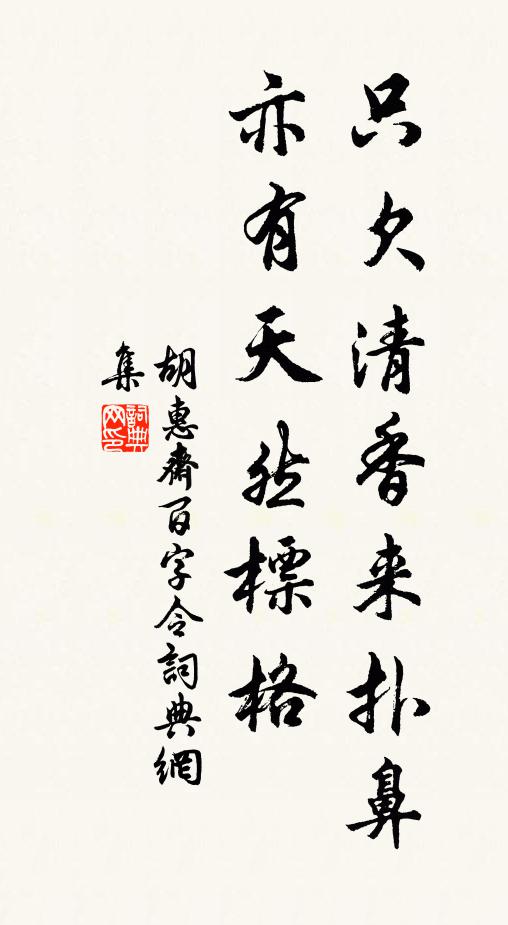 只欠清香来扑鼻
亦有天然標格
胡惠齋百字令詞典網
集
詞典网印